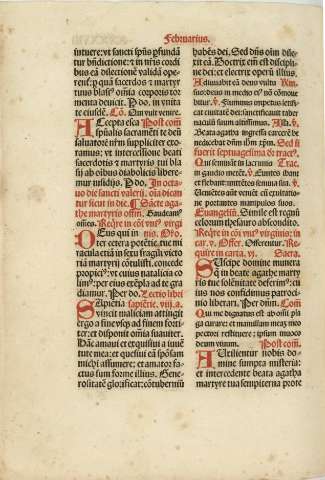 Februarius.
intuere: vt sancti spūs ꝑfunda
tur bn̄dictione: ⁊ in nr̄is cordi
bus eā dilectionē valida ope
retur: ꝑ quā sacerdos ⁊ martyr
tuus blasiꝰ omnia corporis tor
menta deuicit. Ꝑ do. in vnita
te eiusdē. Cō. Qui vult venire.
Accepta esca Post com̄
spūalis sacramēti te deū
saluatorē nr̄m suppliciter exo
ramus: vt intercessione beati
sacerdotis ⁊ martyris tui bla
sij ab oībus diabolicis libere
mur insidijs. Ꝑ do. In octa
uo die sancti valerij. oīa dican
tur sicut in die. Sācte aga
the martyris officiū. Gaudeamꝰ
Reqr̄e in cōi vnꝰ virgi
Deus qui in nis. Oro.
ter cetera potētie tue mi
racula etiā in sexu fragili victo
riā martyrij cōtulisti. concede
propiciꝰ: vt cuius natalicia co
limꝰ: per eius exēpla ad te gra
diamur. Per do. Lectio libri
Sapientia sapiētie. viij. a.
vincit maliciam attingit
ergo a fine vsqꝫ ad finem forti
ter: et disponit omīa suauiter.
Hāc amaui et exquisiui a iuuē
tute mea: et quesiui eā spōsam
michi assumere: et amator fa
ctus sum forme illius. Gene
rositatē glorificat: cōtuberniū
habēs dei. Sed dn̄s oīm dile
xit eā. Doctrix em̄ est discipli
ne dei: et electrix operū illius.
Adiuuabit eā deus vultu
suo: deus in medio eiꝰ nō cōmoue
bitur. Fluminis impetus letifi
cat ciuitatē dei: sanctificauit taber
naculum suum altissimus. Alla.
Beata agatha ingressa carcerē be
nedicebat dn̄m ihm xp̄m. Sed si
fuerit septuagesima dr̄ tractꝰ.
Qui seminant in lacrimis Trac.
in gaudio metēt. Euntes ibant
et flebant: mittentes semina sua.
Veniētes aūt veniēt cū exultatio
ne portantes manipulos suos.
Euangeliū. Simile est regnū
celorum thesauro abscondito.
Reqr̄e in cōi vnꝰ virginis: in
car. v. Offer. Offerentur. Re
quire in carta. vj. Sacra.
Suscipe domine munera
que in beate agathe martyris
tue solēnitate deferimꝰ: cu
ius nos confidimus patroci
nio liberari. Per dom̄. Com̄
Qui me dignatus est ab omni pla
ga curare: et mamillam meāꝫ meo
pectori restituere: ipsum inuoco
deum viuum. Post com̄.
Auxilientur nobis do
mine sumpta misteria:
et intercedente beata agatha
martyre tua sempiterna prote